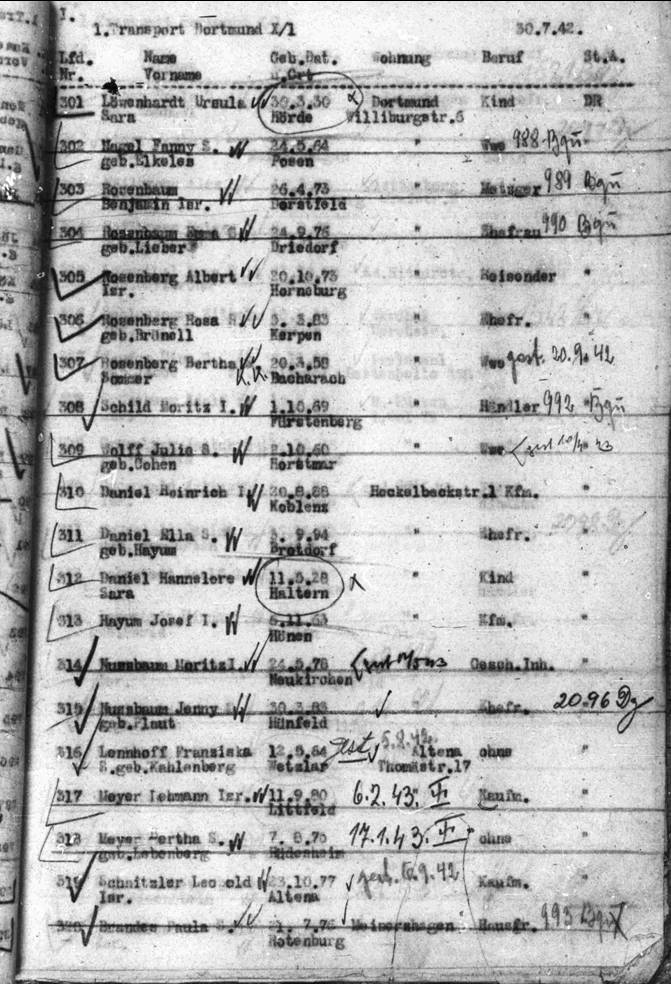 I.
1.Transport Dortmund X/1 30.7.42.
Lfd. Name Geb.Dat. Wohnung Beruf St.A.
Nr. Vorname u.Ort
301 Löwenhardt Ursula 30.3.30 Dortmund Kind DR
Sara Hörde Williburgstr.6
302 Nagel Fanny S. 24.5.64 " Wwe 988 "
geb.Elkeles Posen
303 Rosenbaum 26.4.73 " Metzger 989 "
Benjamin Isr. Dorstfeld
304 Rosenbaum Emma S 24.9.76 " Ehefrau 990 "
geb.Lieber Driedorf
305 Rosenberg Albert 20.10.73 " Reisender "
Isr. Horneburg
306 Rosenberg Rosa S. 5. 3.83 " Ehefr. "
geb.Brünell Kerpen
307 Rosenberg Bertha 20.3.58 " Wwe gest. 20.9.42 "
Sommer K.K. Bacharach
308 Schild Moritz I. 1.10.69 " Händler 992 "
Fürstenberg
309 Wolff Julie S. 2.10.60 " Wwe "
geb.Cohen Horstmar
310 Daniel Heinrich I. 20.8.88 Heckelbeckstr.1 Kfm. "
Koblenz
311 Daniel Ella S. 5. 9.94 " Ehefr. "
geb.Hayum Brotdorf
312 Daniel Hannelore 11.5.28 " Kind "
Sara Haltern
313 Hayum Josef I. 6.11.63 " Kfm. "
314 Nussbaum Moritz I. 24.5.78 Gesch.Inh. "
Neukirchen
315 Nussbaum Jenny 30.3.83 Ehefr. 2096
geb.Plaut Hünfeld
316 Lennhoff Franziska 12.5.64 gest 5.8.42 Altena ohne "
S.geb.Kahlenberg Wetzlar Thomästr.17
317 Meyer Lehmann Isr. 11.9.80 6.2.43. Kaufm. "
Littfeld
318 Meyer Bertha S. 7. 8.70 17.1.43. ohne "
Rüdesheim
319 Schnitzler Leopold 23.10.77 Kaufm. "
Isr. Altena
320 Brandes Paula S. 7.76 Meinerzhagen Hausfr. 993
Rotenburg